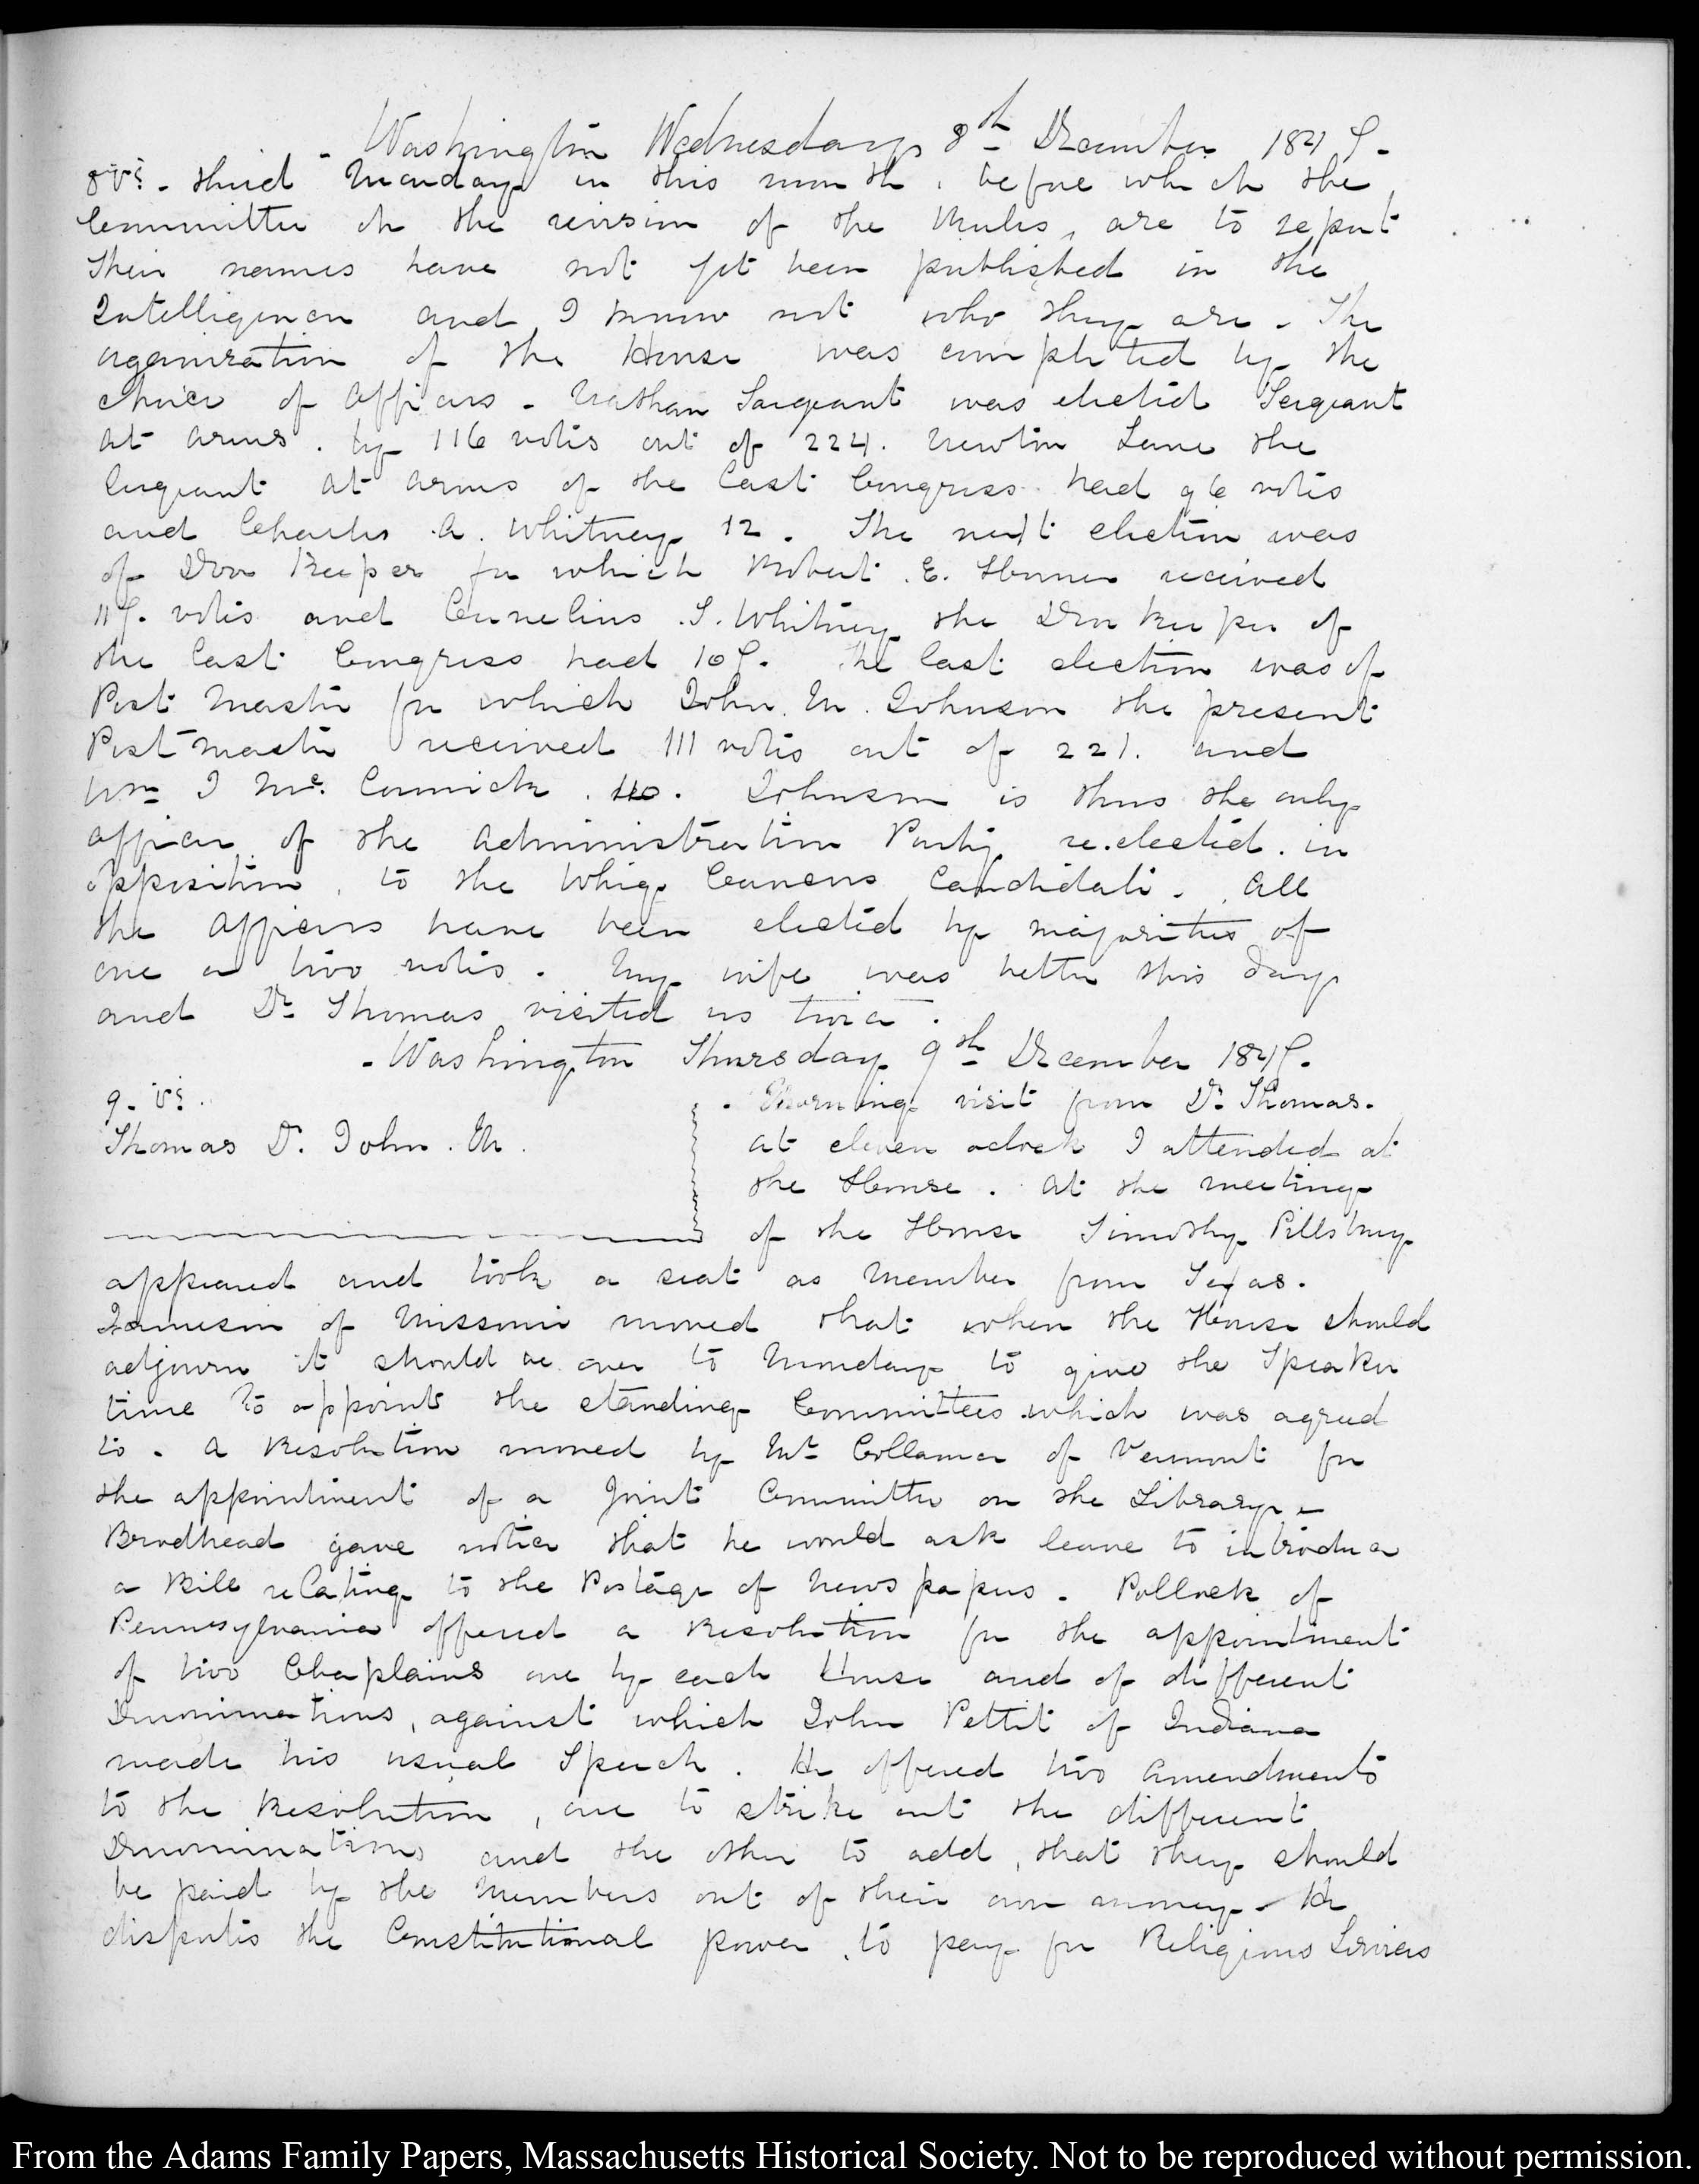 Washington Wednesday 8th December 1847.
8. V:. third Monday in this month, before which the
Committee on the revision of the Rules, are to report
Their names have not yet been published in the
Intelligencer and I know not who they are. The
organization of the House was completed by the
choice of Officers. Nathan Sargeant was elected Sergeant
at Arms. by 116 votes out of 224. Newton Lane the
Sergeant at Arms of the last Congress had 96 votes
and Charles A. Whitney 12. The next election was
of Door Keeper for which Robert E. Horner received
117. votes and Cornelius S. Whitney the Door Keeper of
the last Congress had 107. The last election was of
Post Master for which John M. Johnson the present
Postmaster received 111 votes out of 221. and
Wm J McCormick. 110. Johnson is thus the only
officer of the Administration Party re.elected. in
opposition, to the Whig Caucus Candidate. All
the Officers have been elected by majorities of
one or two votes. My wife was better this day
and Dr. Thomas visited us twice.
Washington Thursday 9th December 1847.
9. V:.
Thomas Dr. John. M.
Morning visit from Dr. Thomas.
At eleven oclock I attended at
the House. At the meeting
of the House Timothy Pillsbury
appeared and took a seat as Member from Texas.
Jameson of Missouri moved that when the House should
adjourn it should be over to Monday to give the Speaker
time to appoint the standing Committees which was agreed
to. A Resolution moved by Mr. Collamer of Vermont for
the appointment of a Joint Committee on the Library.
Brodhead gave notice that he would ask leave to introduce
a Bill relating to the Postage of Newspapers. Pollock of
Pennsylvania offered a Resolution for the appointment
of two Chaplains one by each House and of different
Denominations, against which John Pettit of Indiana
made his usual Speech. He offered two Amendments
to the Resolution, one to strike out the different
Denominations and the other to add, that they should
be paid by the Members out of their own money. He
disputes the Constitutional power, to pay for Religious Services
From the Adams Family Papers, Massachusetts Historical Society. Not to be reproduced without permission.